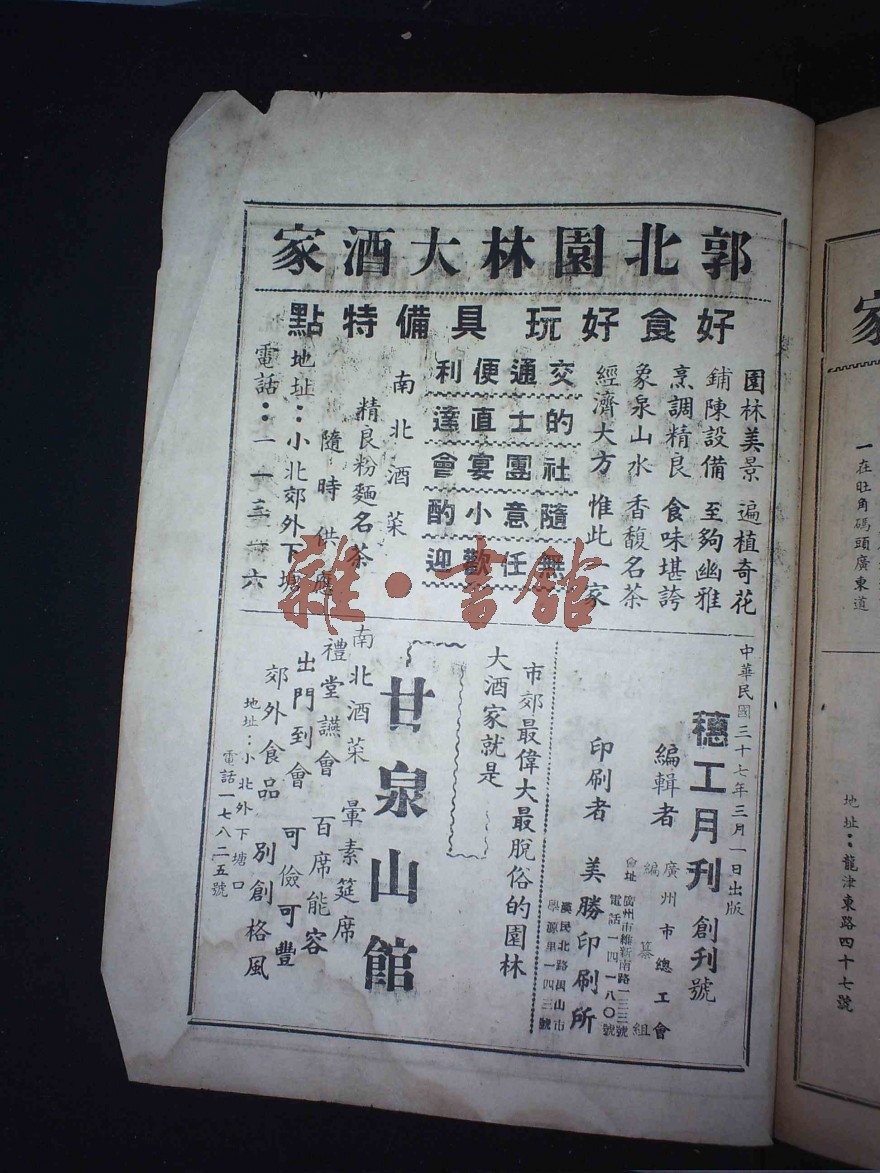 郭北園林大酒家
好食好玩 具備特點
園林美景 遍植奇花
鋪陳設備 至夠幽雅
烹調精良 食味堪誇
象泉山水 香馥名茶
經濟大方 惟此一家
交通便利
的士直達
社團宴會
隨意小酌
無任歡迎
南北酒菜
精良粉麵名茶
隨時供應
地址：小北郊外下塘
電話：一一三六
中華民國三十七年三月一日出版
穗工月刊 創刊號
編輯者 廣州市總工會
編纂組
會址 廣州市維新南路一三三號
電話一四一八〇號
印刷者 美勝印刷所
漢民北路禺山市
學源里一四三號
市郊最偉大最脫俗的園林
大酒家就是
甘泉山館
南北酒菜 暈素筵席
禮堂讌會 百席能容
出門到會 可儉可豐
郊外食品 別創格風
地址：小北外下塘口
電話一七八二五號
雜·書館
家
一在旺角碼頭廣東道
地址：龍津東路四十七號